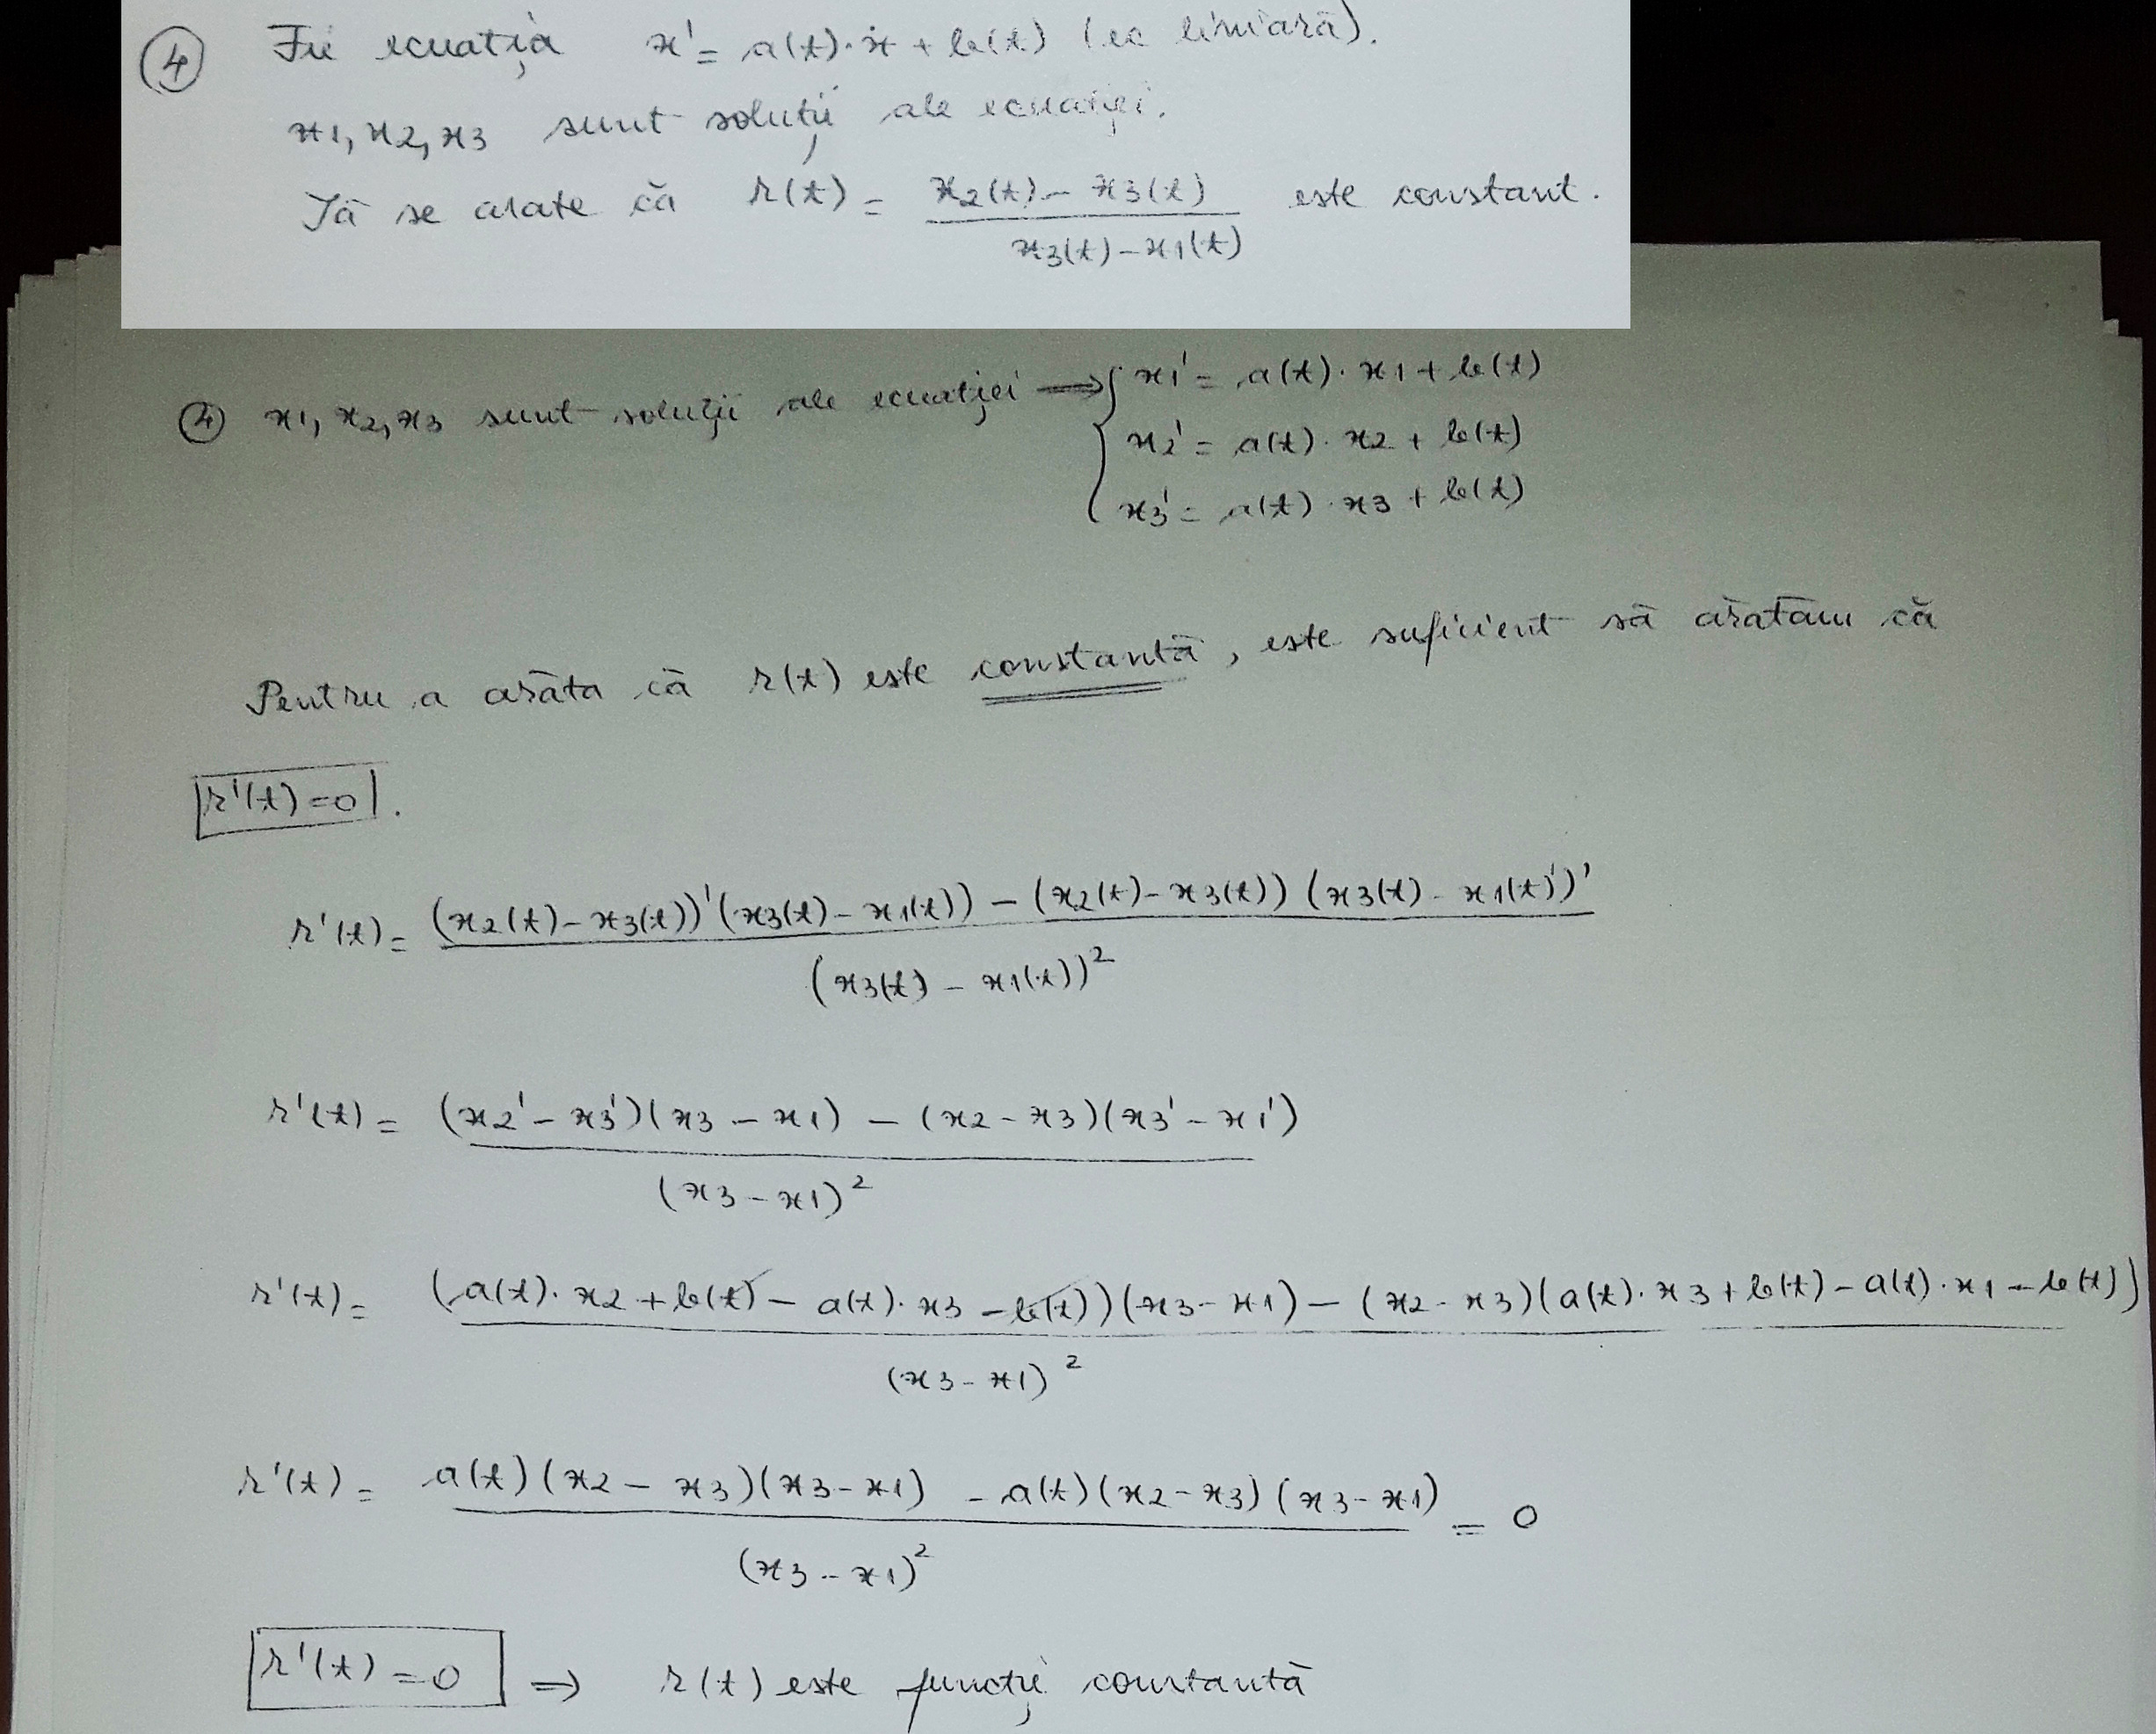 ④ Fie ecuația x' = a(t)·x + b(t) (ec liniară).
x1, x2, x3 sunt soluții ale ecuației.
Să se arate că r(t) = (x2(t) - x3(t)) / (x3(t) - x1(t)) este constant.
④ x1, x2, x3 sunt soluții ale ecuației ⟹ { x1' = a(t)·x1 + b(t)
x2' = a(t)·x2 + b(t)
x3' = a(t)·x3 + b(t)
Pentru a arăta că r(t) este constantă, este suficient să arătăm că
r'(t)=0.
r'(t) = ((x2(t) - x3(t))'(x3(t) - x1(t)) - (x2(t) - x3(t))(x3(t) - x1(t))') / (x3(t) - x1(t))²
r'(t) = ((x2' - x3')(x3 - x1) - (x2 - x3)(x3' - x1')) / (x3 - x1)²
r'(t) = ((a(t)·x2 + b(t) - a(t)·x3 - b(t))(x3 - x1) - (x2 - x3)(a(t)·x3 + b(t) - a(t)·x1 - b(t))) / (x3 - x1)²
r'(t) = (a(t)(x2 - x3)(x3 - x1) - a(t)(x2 - x3)(x3 - x1)) / (x3 - x1)² = 0
r'(t) = 0 ⟹ r(t) este funcție constantă